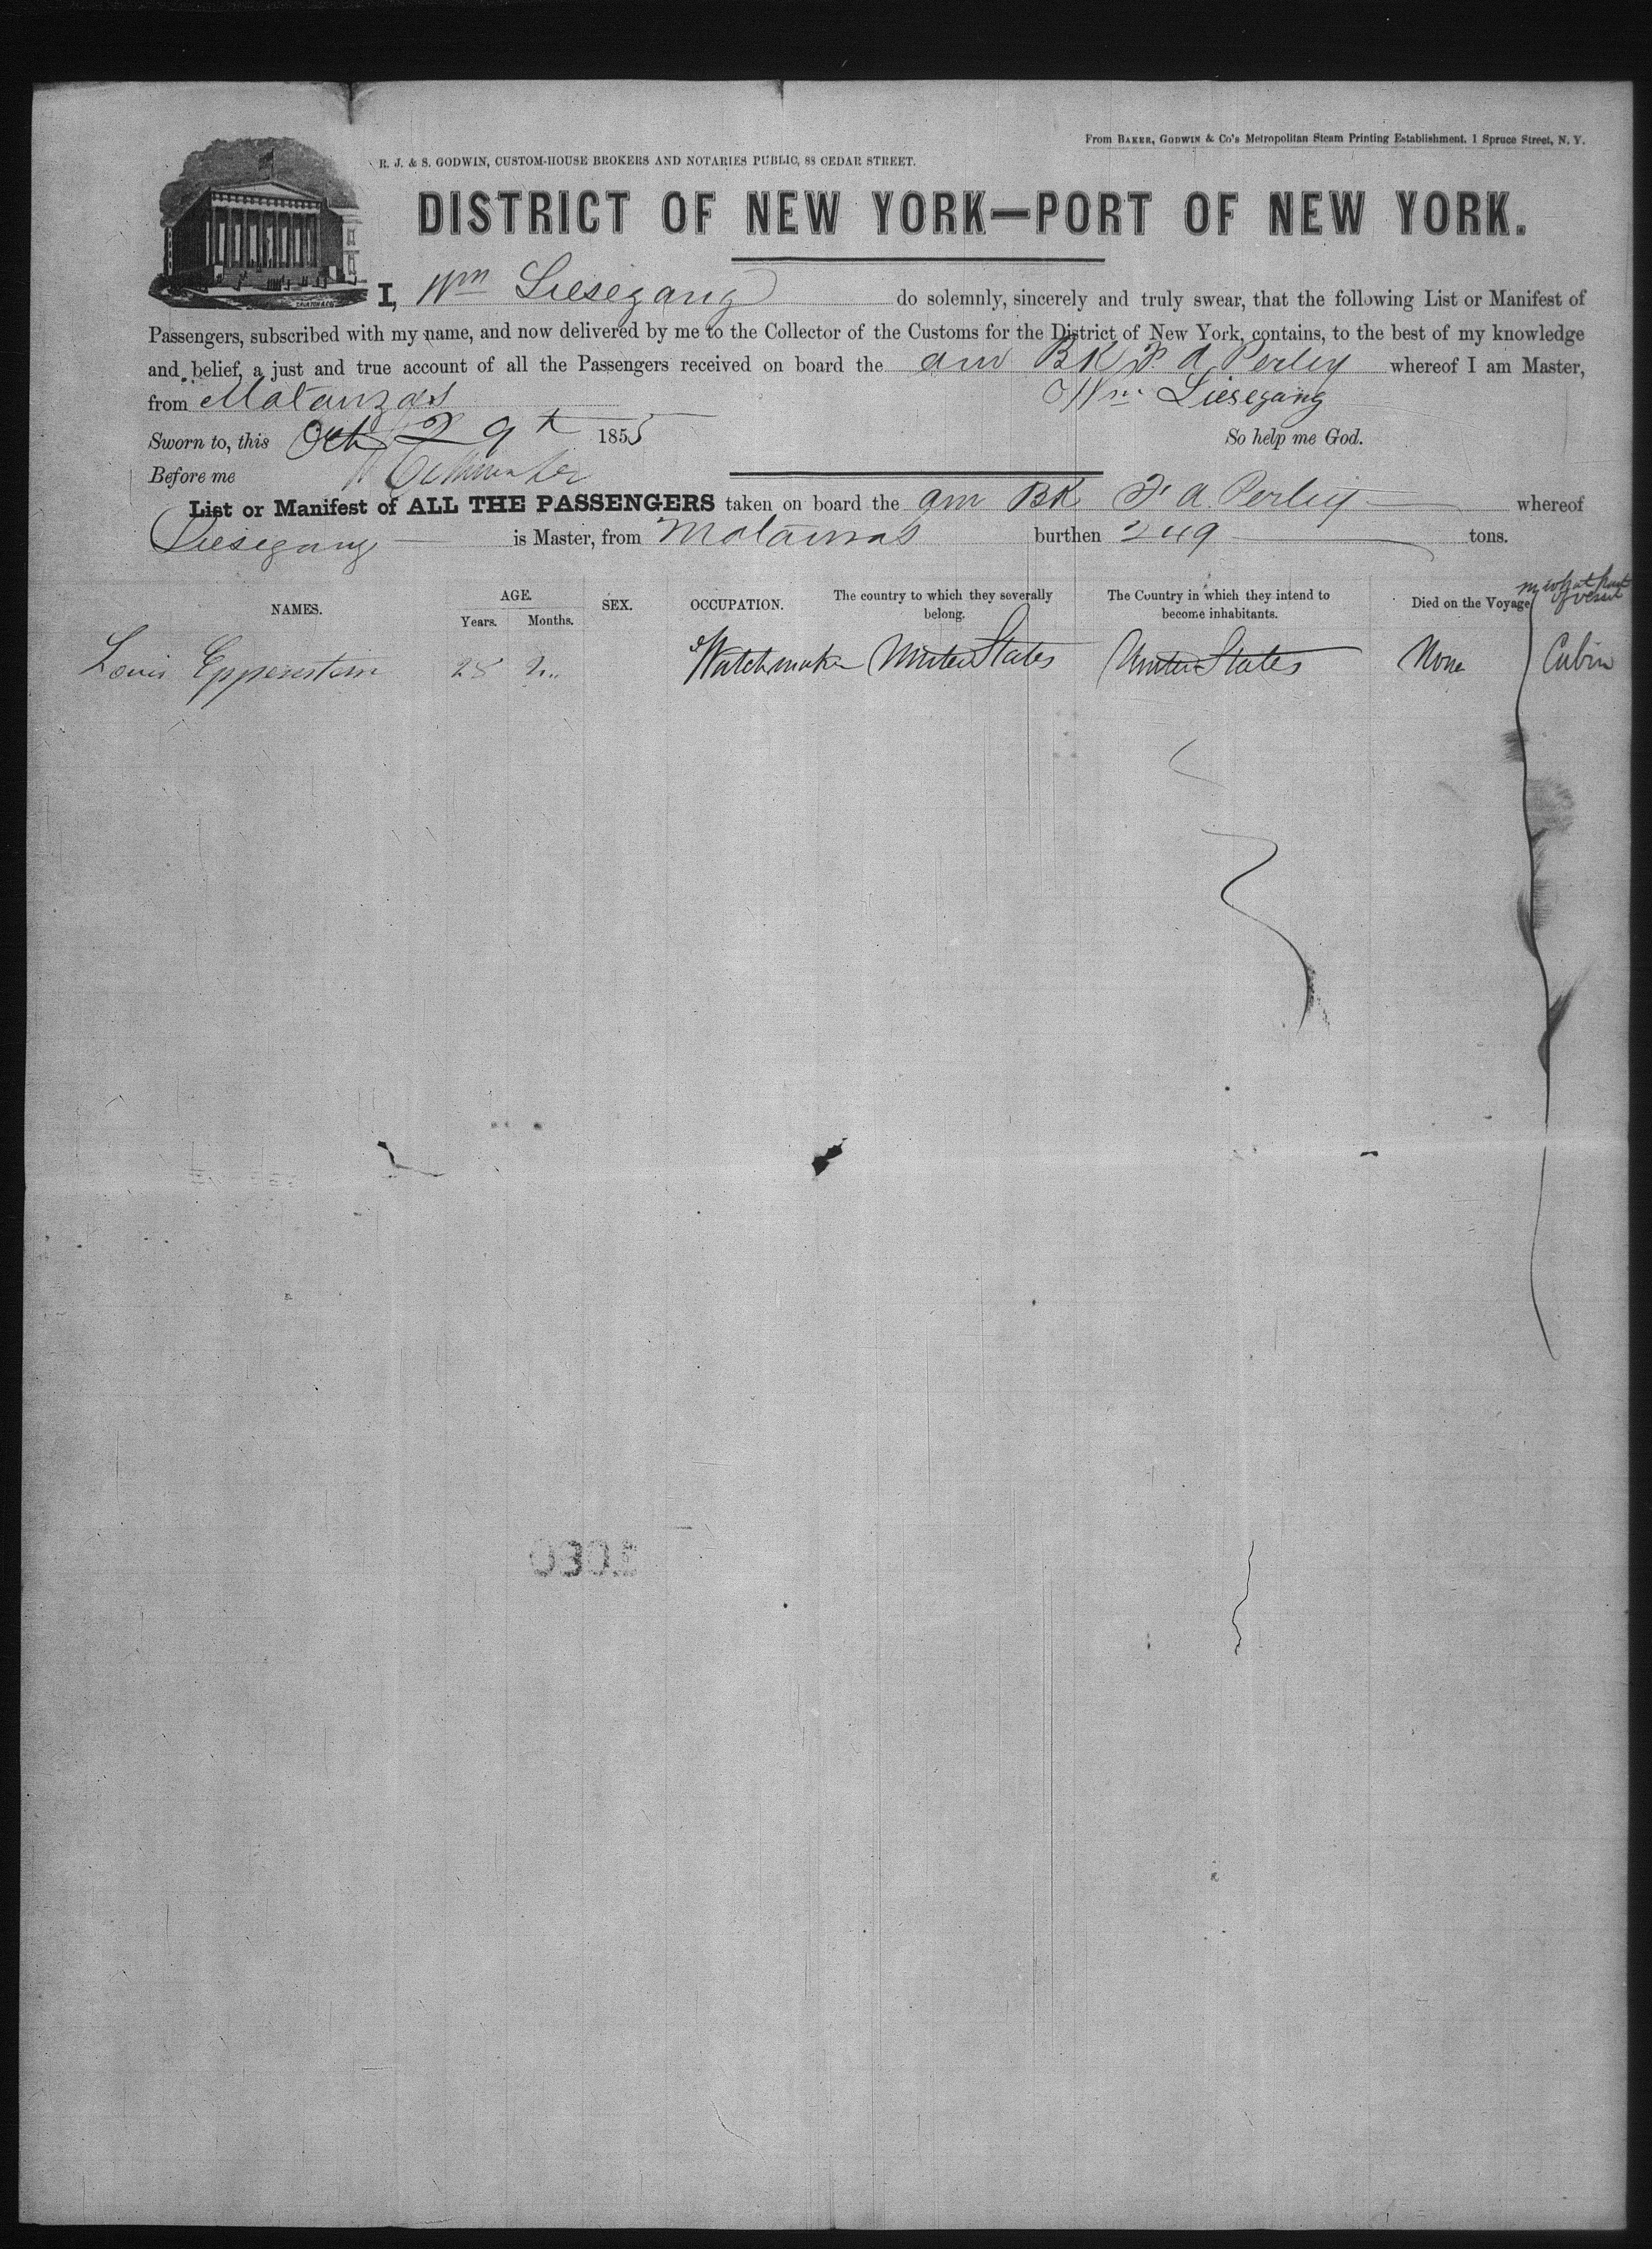 From BAKER, GODWIN & Co's Metropolitan Steam Printing Establishment. 1 Spruce Street, N. Y.
R. J. & S. GODWIN, CUSTOM-HOUSE BROKERS AND NOTARIES PUBLIC, 88 CEDAR STREET.
DISTRICT OF NEW YORK—PORT OF NEW YORK.
I, Wm Liesegang do solemnly, sincerely and truly swear, that the following List or Manifest of
Passengers, subscribed with my name, and now delivered by me to the Collector of the Customs for the District of New York, contains, to the best of my knowledge
and belief, a just and true account of all the Passengers received on board the Am Bk F. A Perley whereof I am Master,
from Matanzas Wm Liesegang
Sworn to, this Oct 29t 1855 So help me God.
Before me
List or Manifest of ALL THE PASSENGERS taken on board the Am Bk F A Perley whereof
Liesegang is Master, from Matanzas burthen 249 tons.
NAMES. AGE. Years. Months. SEX. OCCUPATION. The country to which they severally belong. The Country in which they intend to become inhabitants. Died on the Voyage in what part of vessel
Louis Eppenstein 28 Watchmaker United States United States None Cabin
0301